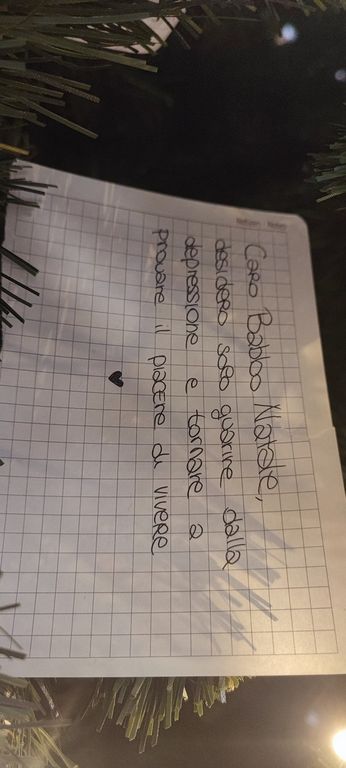 Caro Babbo Natale,
desidero solo guarire dalla
depressione e tornare a
provare il piacere di vivere